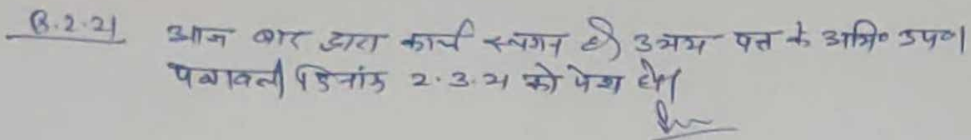 8.2.21 आज बार द्वारा कार्य स्थगन है। उभय पक्ष के अभि० उप०।
पत्रावली दिनांक 2.3.21 को पेश हो।